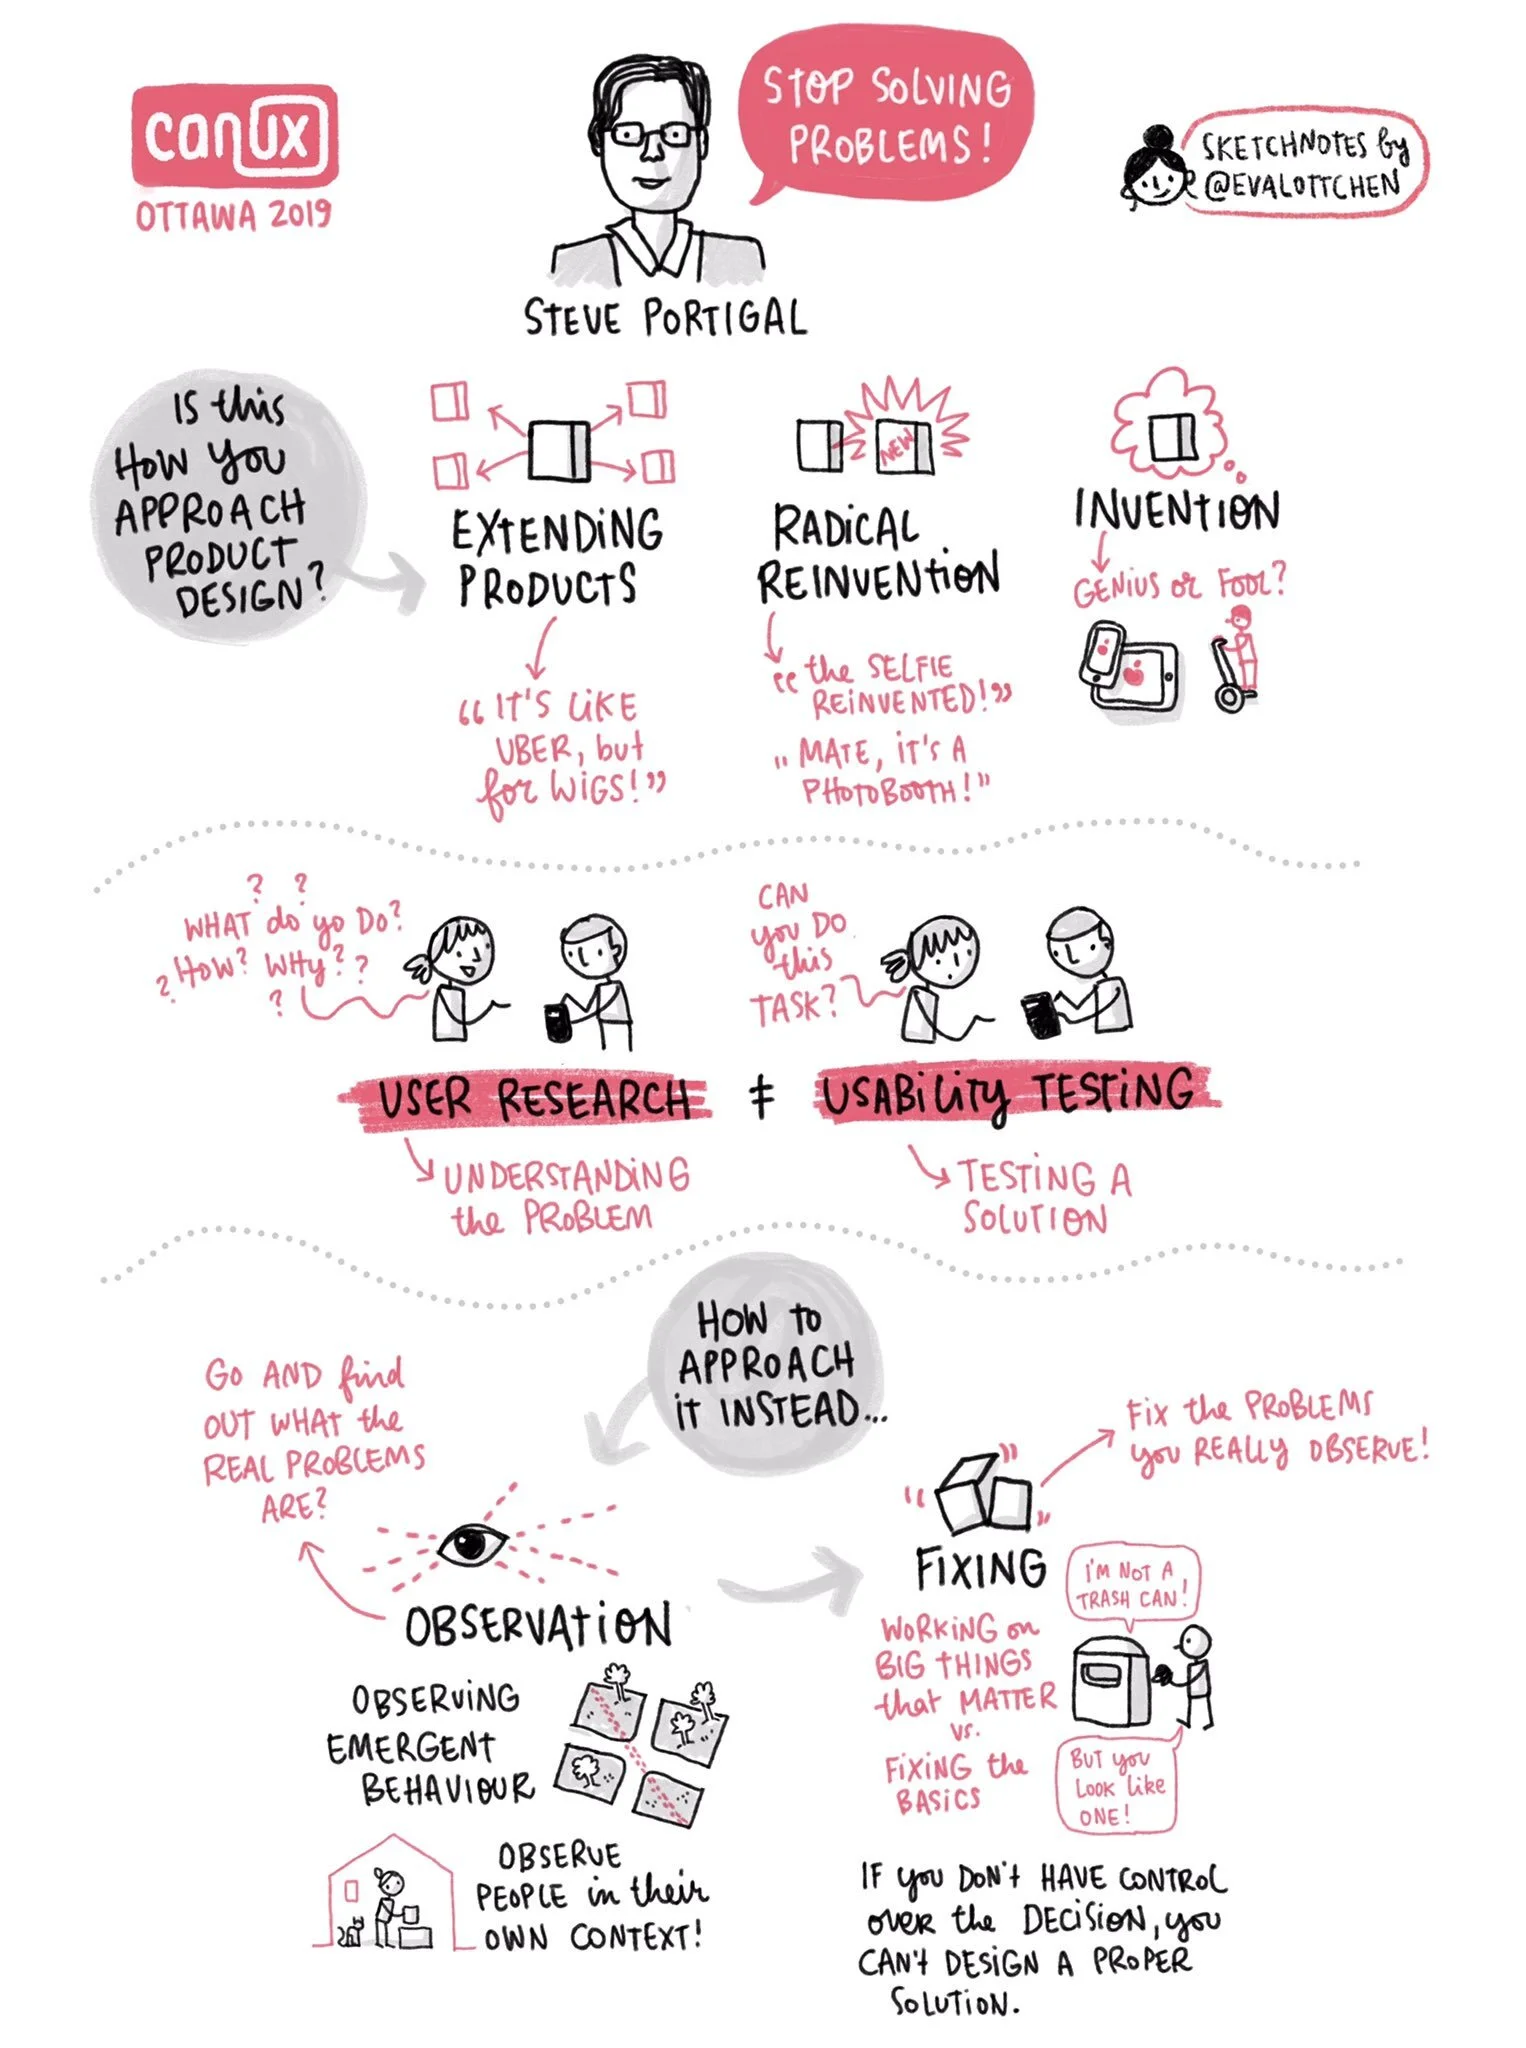 canux
OTTAWA 2019
STOP SOLVING
PROBLEMS!
SKETCHNOTES by
@EVALOTTCHEN
STEVE PORTIGAL
IS this
HOW you
APPROACH
PRODUCT
DESIGN?
EXTENDING
PRODUCTS
"IT'S LIKE
UBER, but
for WIGS!"
NEW
RADICAL
REINVENTION
"the SELFIE
REINVENTED!"
"MATE, it's A
PHOTOBOOTH!"
INVENTION
GENIUS or FOOL?
? ?
WHAT do yo DO?
? HOW? WHY? ?
?
CAN
you DO
this
TASK?
USER RESEARCH ≠ USABILITY TESTING
UNDERSTANDING
the PROBLEM
TESTING A
SOLUTION
HOW to
APPROACH
iT INSTEAD...
GO AND find
OUT WHAT the
REAL PROBLEMS
ARE?
OBSERVATION
OBSERVING
EMERGENT
BEHAVIOUR
OBSERVE
PEOPLE in their
OWN CONTEXT!
Fix the PROBLEMS
you REALLY OBSERVE!
FIXING
WORKING on
BIG THINGS
that MATTER
vs.
FIXING the
BASICS
I'M NOT A
TRASH CAN!
BUT you
LOOK like
ONE!
IF you DON't HAVE CONTROL
over the DECISION, you
CAN't DESIGN A PROPER
SOLUTION.